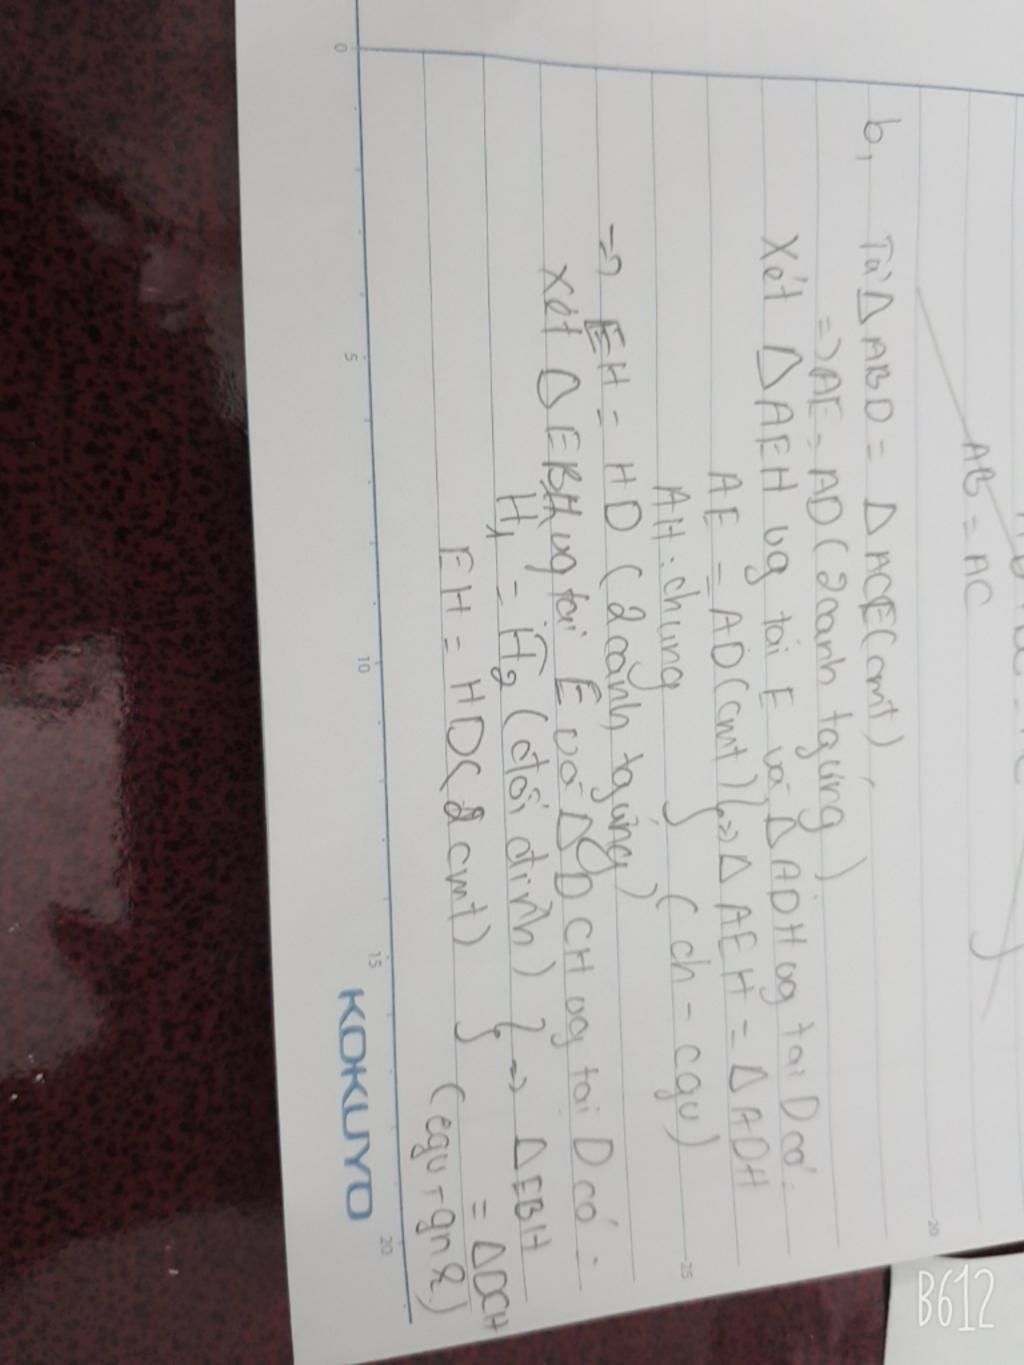 AB = AC
b, Từ Δ ABD = Δ ACE (cmt)
=> AE = AD (2 cạnh tg ứng)
Xét Δ AEH vg tại E và Δ ADH vg tại D có:
AE = AD (cmt) } => Δ AEH = Δ ADH
AH : chung } (ch - cgv)
=> EH = HD (2 cạnh tg ứng)
Xét Δ EBH vg tại E và Δ DCH vg tại D có :
H1 = H2 (đối đỉnh) } => Δ EBH
EH = HD (2 cmt) } = Δ DCH
(cgv - gn k)
0 5 10 15 20
KOKUYO
20
25
B612